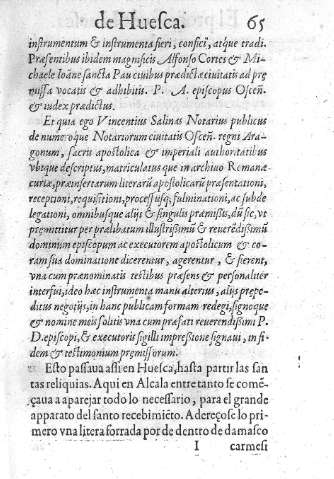 de Huesca. 65
instrumentum & instrumenta fieri, confici, atque tradi.
Præsentibus ibidem magnificis Alfonso Cortes & Mi-
chaele Ioãne sancta Pau ciuibus prædictæ ciuitatis ad pre
missa vocatis & adhibitis. P. A. episcopus Osceñ.
& iudex prædictus.
Et quia ego Vincentius Salinas Notarius publicus
de numeroque Notariorum ciuitatis Osceñ. regni Ara-
gonum, sacris apostolica & imperiali authoritatibus
vbique descriptus, matriculatus que in archiuo Romanæ
curiæ, præinsertarum literarũ apostolicarũ præsentationi,
receptioni, requisitioni, processusq;, fulminationi, ac subde
legationi, omnibusque alijs & singulis præmissis, dũ sic, vt
præmittitur per prælibatum illustrissimũ & reuerẽdissimũ
dominum episcopum ac executorem apostolicum & co-
ram sua dominatione dicerentur, agerentur, & fierent,
vna cum prænominatis testibus præsens & personaliter
interfui, ideo hæc instrumenta manu alterius, alijs præpe-
ditus negotijs, in hanc publicam formam redegi, signoque
& nomine meis solitis vna cum præfati reuerendissimi P.
D. episcopi, & executoris sigilli impressione signaui, in fi-
dem & testimonium premissorum.
Esto passaua assi en Huesca, hasta partir las san
tas reliquias. Aqui en Alcala entre tanto se comẽ-
çaua a aparejar todo lo necessario, para el grande
apparato del santo recebimiẽto. Adereçose lo pri-
mero vna litera forrada por de dentro de damasco
I carmesi